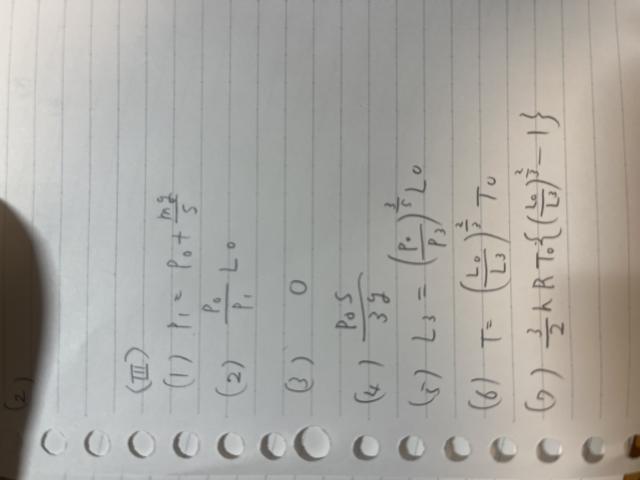 (2)
(III)
(1) P₁ = P₀ + mg/S
(2) P₀/P₁ L₀
(3) 0
(4) P₀S/3g
(5) L₃ = (P₀/P₃)^(3/5) L₀
(6) T = (L₀/L₃)^(2/3) T₀
(7) 3/2 n R T₀ {(L₀/L₃)^(2/3) - 1}